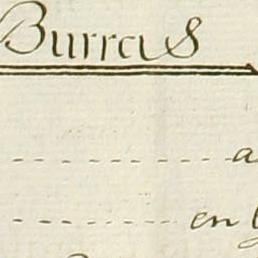 Burrus
a
en